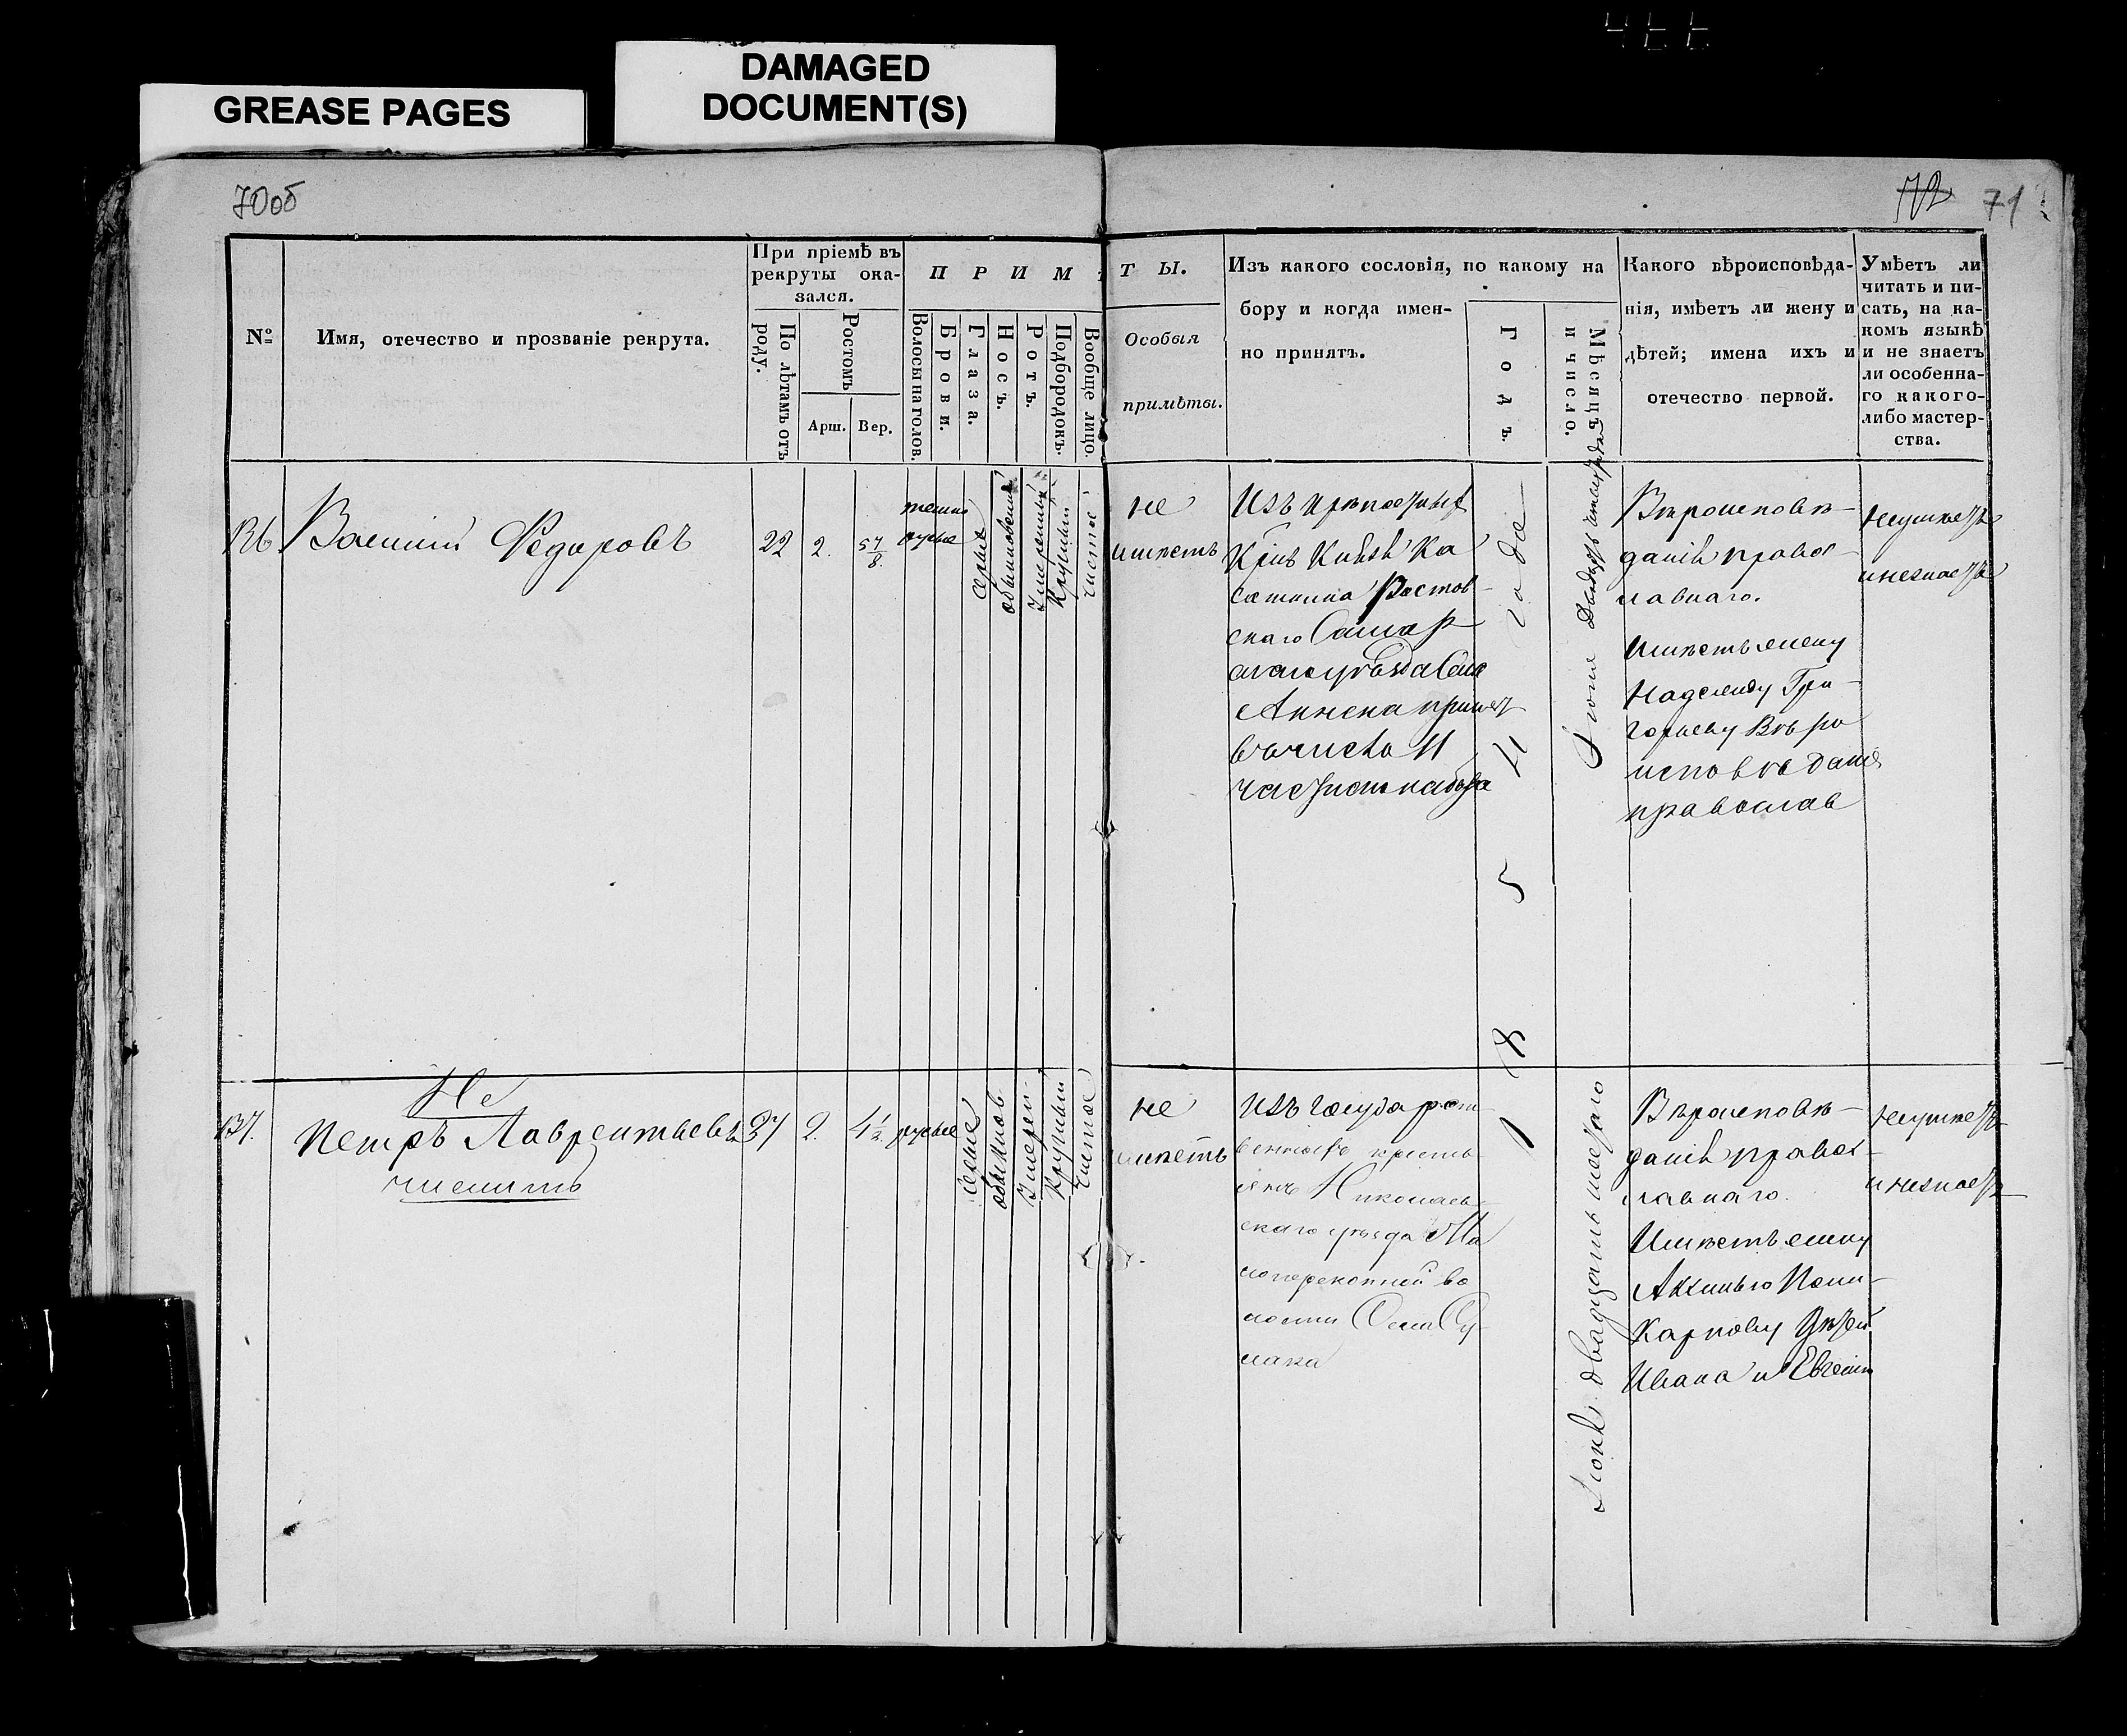 GREASE PAGES
DAMAGED
DOCUMENT(S)
70об
72 71
№
Имя, отечество и прозваніе рекрута.
При пріемѣ въ
рекруты ока-
зался.
По лѣтамъ отъ
роду.
Ростомъ
Арш. Вер.
П Р И М
Волосы на голов.
Брови.
Глаза.
Носъ.
Ротъ.
Подбородокъ.
Вообще лицо.
Т Ы.
Особыя
примѣты.
Изъ какого сословія, по какому на
бору и когда имен-
но принятъ.
Годъ.
Мѣсяцъ
и число.
Какого вѣроисповѣда-
нія, имѣетъ ли жену и
дѣтей; имена ихъ и
отечество первой.
Умѣетъ ли
читать и пи-
сать, на ка-
комъ языкѣ
и не знаетъ
ли особенна-
го какого-
либо мастер-
ства.
136
Василій Федоровъ
22
2.
5 7/8.
темно
русые
серые
обыкновенный
умеренный
круглый
чистое
не
имѣетъ
Изъ
Князя Ка
Ростов
скаго Самар
скаго уѣзда Села
Аннена принят
въ число 11
част набора
1854 года
Іюня
Вѣроисповѣ-
данія правос-
лавнаго.
Имѣетъ жену
Надежду Гри-
горьеву Вѣро
исповѣданія
православ
неумѣетъ
и незнаетъ
137.
Не
Петръ Лаврентьевъ
числить
37
2.
4 1/2
русые
серые
обыкнов
умерен
круглый
чистое
не
имѣетъ
Изъ государст-
венныхъ кресть
янъ Николаев-
скаго уѣзда Ма
лоперекопной во
лости Села Су-
лака
Іюня двадцать шестаго
Вѣроисповѣ-
данія правос-
лавнаго.
Имѣетъ жену
Аксинью Поли-
карпову дѣтей
Ивана и Евгенію
неумѣетъ
и незнаетъ